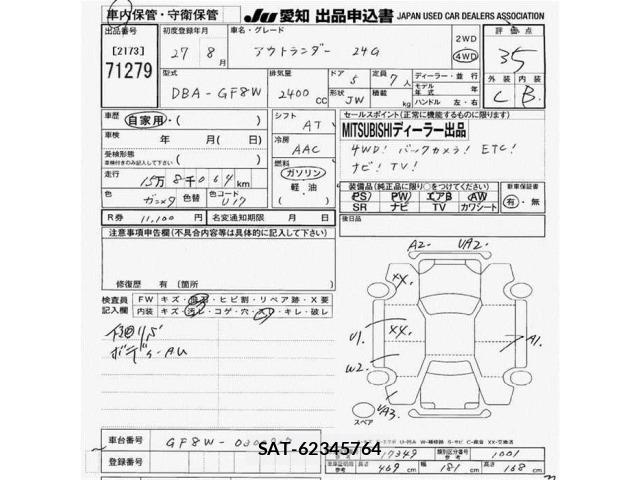 車内保管・守衛保管 JU 愛知 出品申込書 JAPAN USED CAR DEALERS ASSOCIATION
出品番号 初度登録年月 車名・グレード 2WD 評価点
[2173] 27年 8月 アウトランダー 24G 4WD 35
71279 型式 排気量 ドア 定員 ディーラー・並行 外装 内装
DBA-GF8W 2400cc 5 7人 モデル年式 年 C B
形状 JW 積載 kg ハンドル 左・右
車歴 自家用・( ) シフト AT セールスポイント(正常に機能するものに限ります)
MITSUBISHIディーラー出品
車検 年 月(日) 冷房 AAC 4WD! バックカメラ! ETC!
受検形態 燃料 ナビ! TV!
車検付きのみ記入して下さい ( ) ガソリン
走行 15万8千064km 軽・油 装備品(純正品に限り○をつけてください) 新車保証書
色 ガンメタ 色替 色コード U17 ( ) PS PW エアB AW 有・無
SR ナビ TV カワシート
R券 11,100円 名変通知期限 月 日 後日品
注意事項申告欄(不具合内容等は具体的に記入して下さい)
A2. UA2.
XX.
修復歴 有 [箇所
検査員 FW キズ・飛石・ヒビ割・リペア跡・X要
記入欄 内装 キズ・汚レ・コゲ・穴・スレ・キレ・破レ
U1. XX. A1.
下回りS
W2.
UA3.
スペア
車台番号 GF8W-
SAT-62345764
登録番号 類別区分番号 1001
17349
長さ 469cm 幅 181cm 高さ 168cm